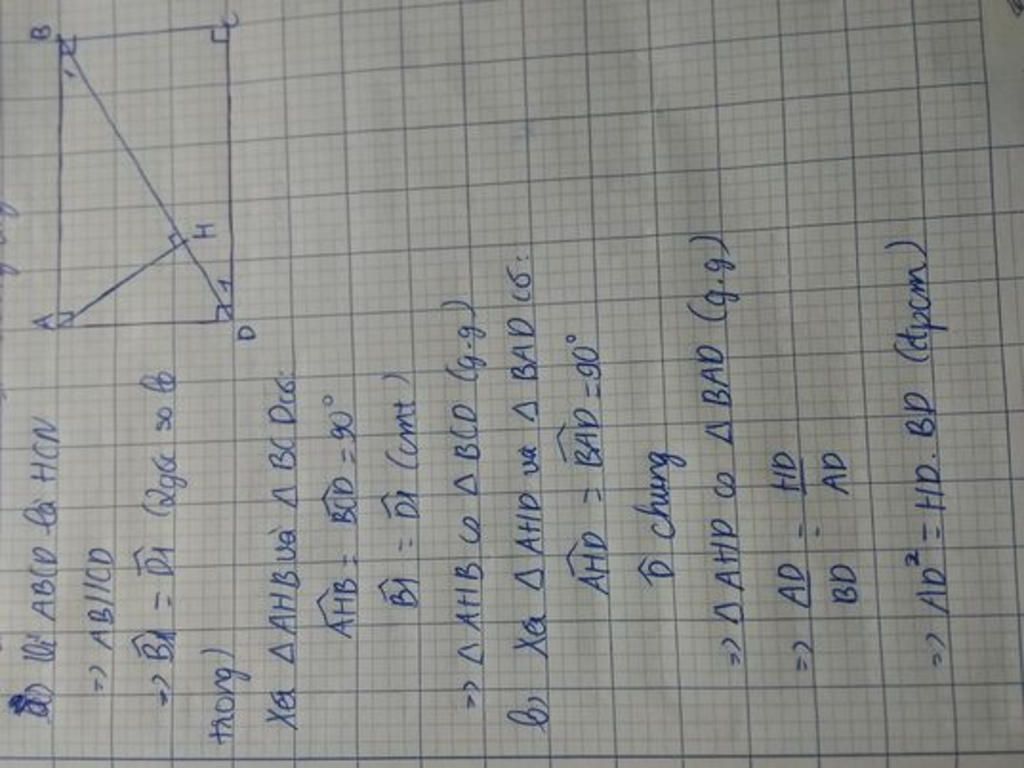 a) Vì ABCD là HCN
=> AB//CD
=> B̂1 = D̂1 (2 góc so le
trong)
Xét ΔAHB và ΔBCD có:
AHB = BCD = 90°
B̂1 = D̂1 (cmt)
=> ΔAHB ∽ ΔBCD (g.g)
b, Xét ΔAHD và ΔBAD có:
AHD = BAD = 90°
D̂ chung
=> ΔAHD ∽ ΔBAD (g.g)
=> AD/BD = HD/AD
=> AD² = HD.BD (đpcm)
A
B
1
C
H
1
D